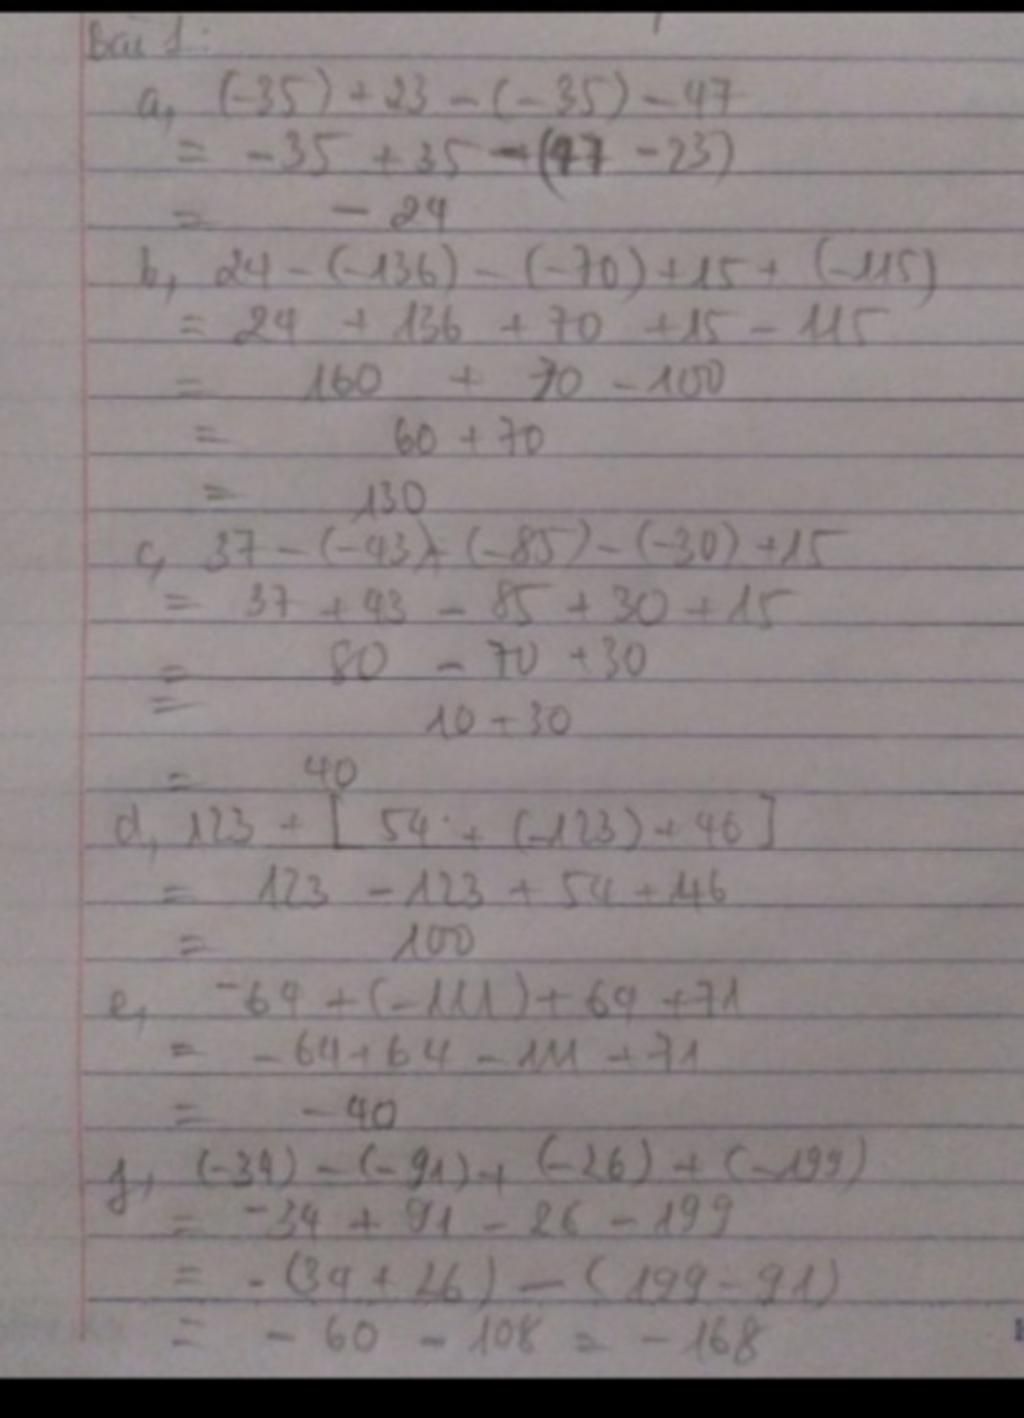 Bài 1:
a, (-35) + 23 - (-35) - 47
= -35 + 35 - (47 - 23)
= - 24
b, 24 - (-136) - (-70) + 15 + (-115)
= 24 + 136 + 70 + 15 - 115
= 160 + 70 - 100
= 60 + 70
= 130
c, 37 - (-43) + (-85) - (-30) + 15
= 37 + 43 - 85 + 30 + 15
= 80 - 70 + 30
= 10 + 30
= 40
d, 123 + [ 54 + (-123) + 46 ]
= 123 - 123 + 54 + 46
= 100
e, -64 + (-111) + 64 + 71
= -64 + 64 - 111 + 71
= -40
f, (-34) - (-91) + (-26) + (-199)
= -34 + 91 - 26 - 199
= - (34 + 26) - (199 - 91)
= - 60 - 108 = - 168